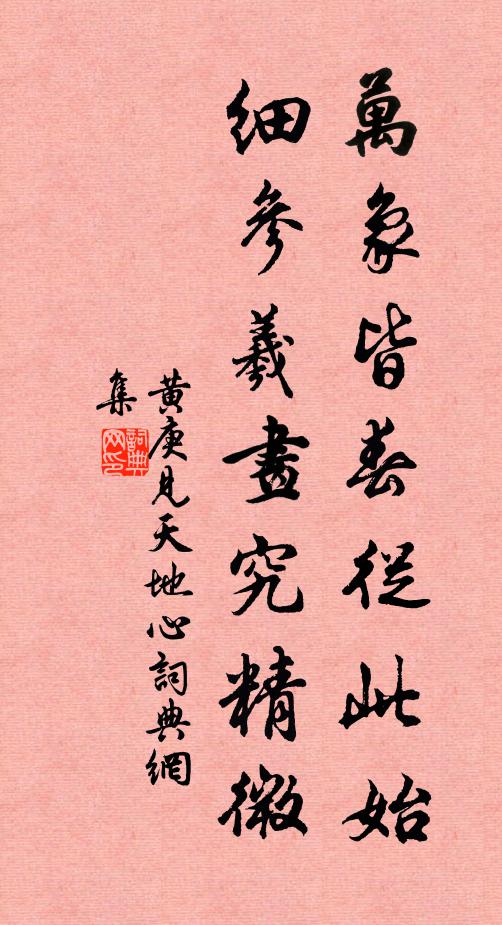 萬象皆春從此始
細參羲畫究精微
黄庚見天地心詞典網
集
詞典
网印